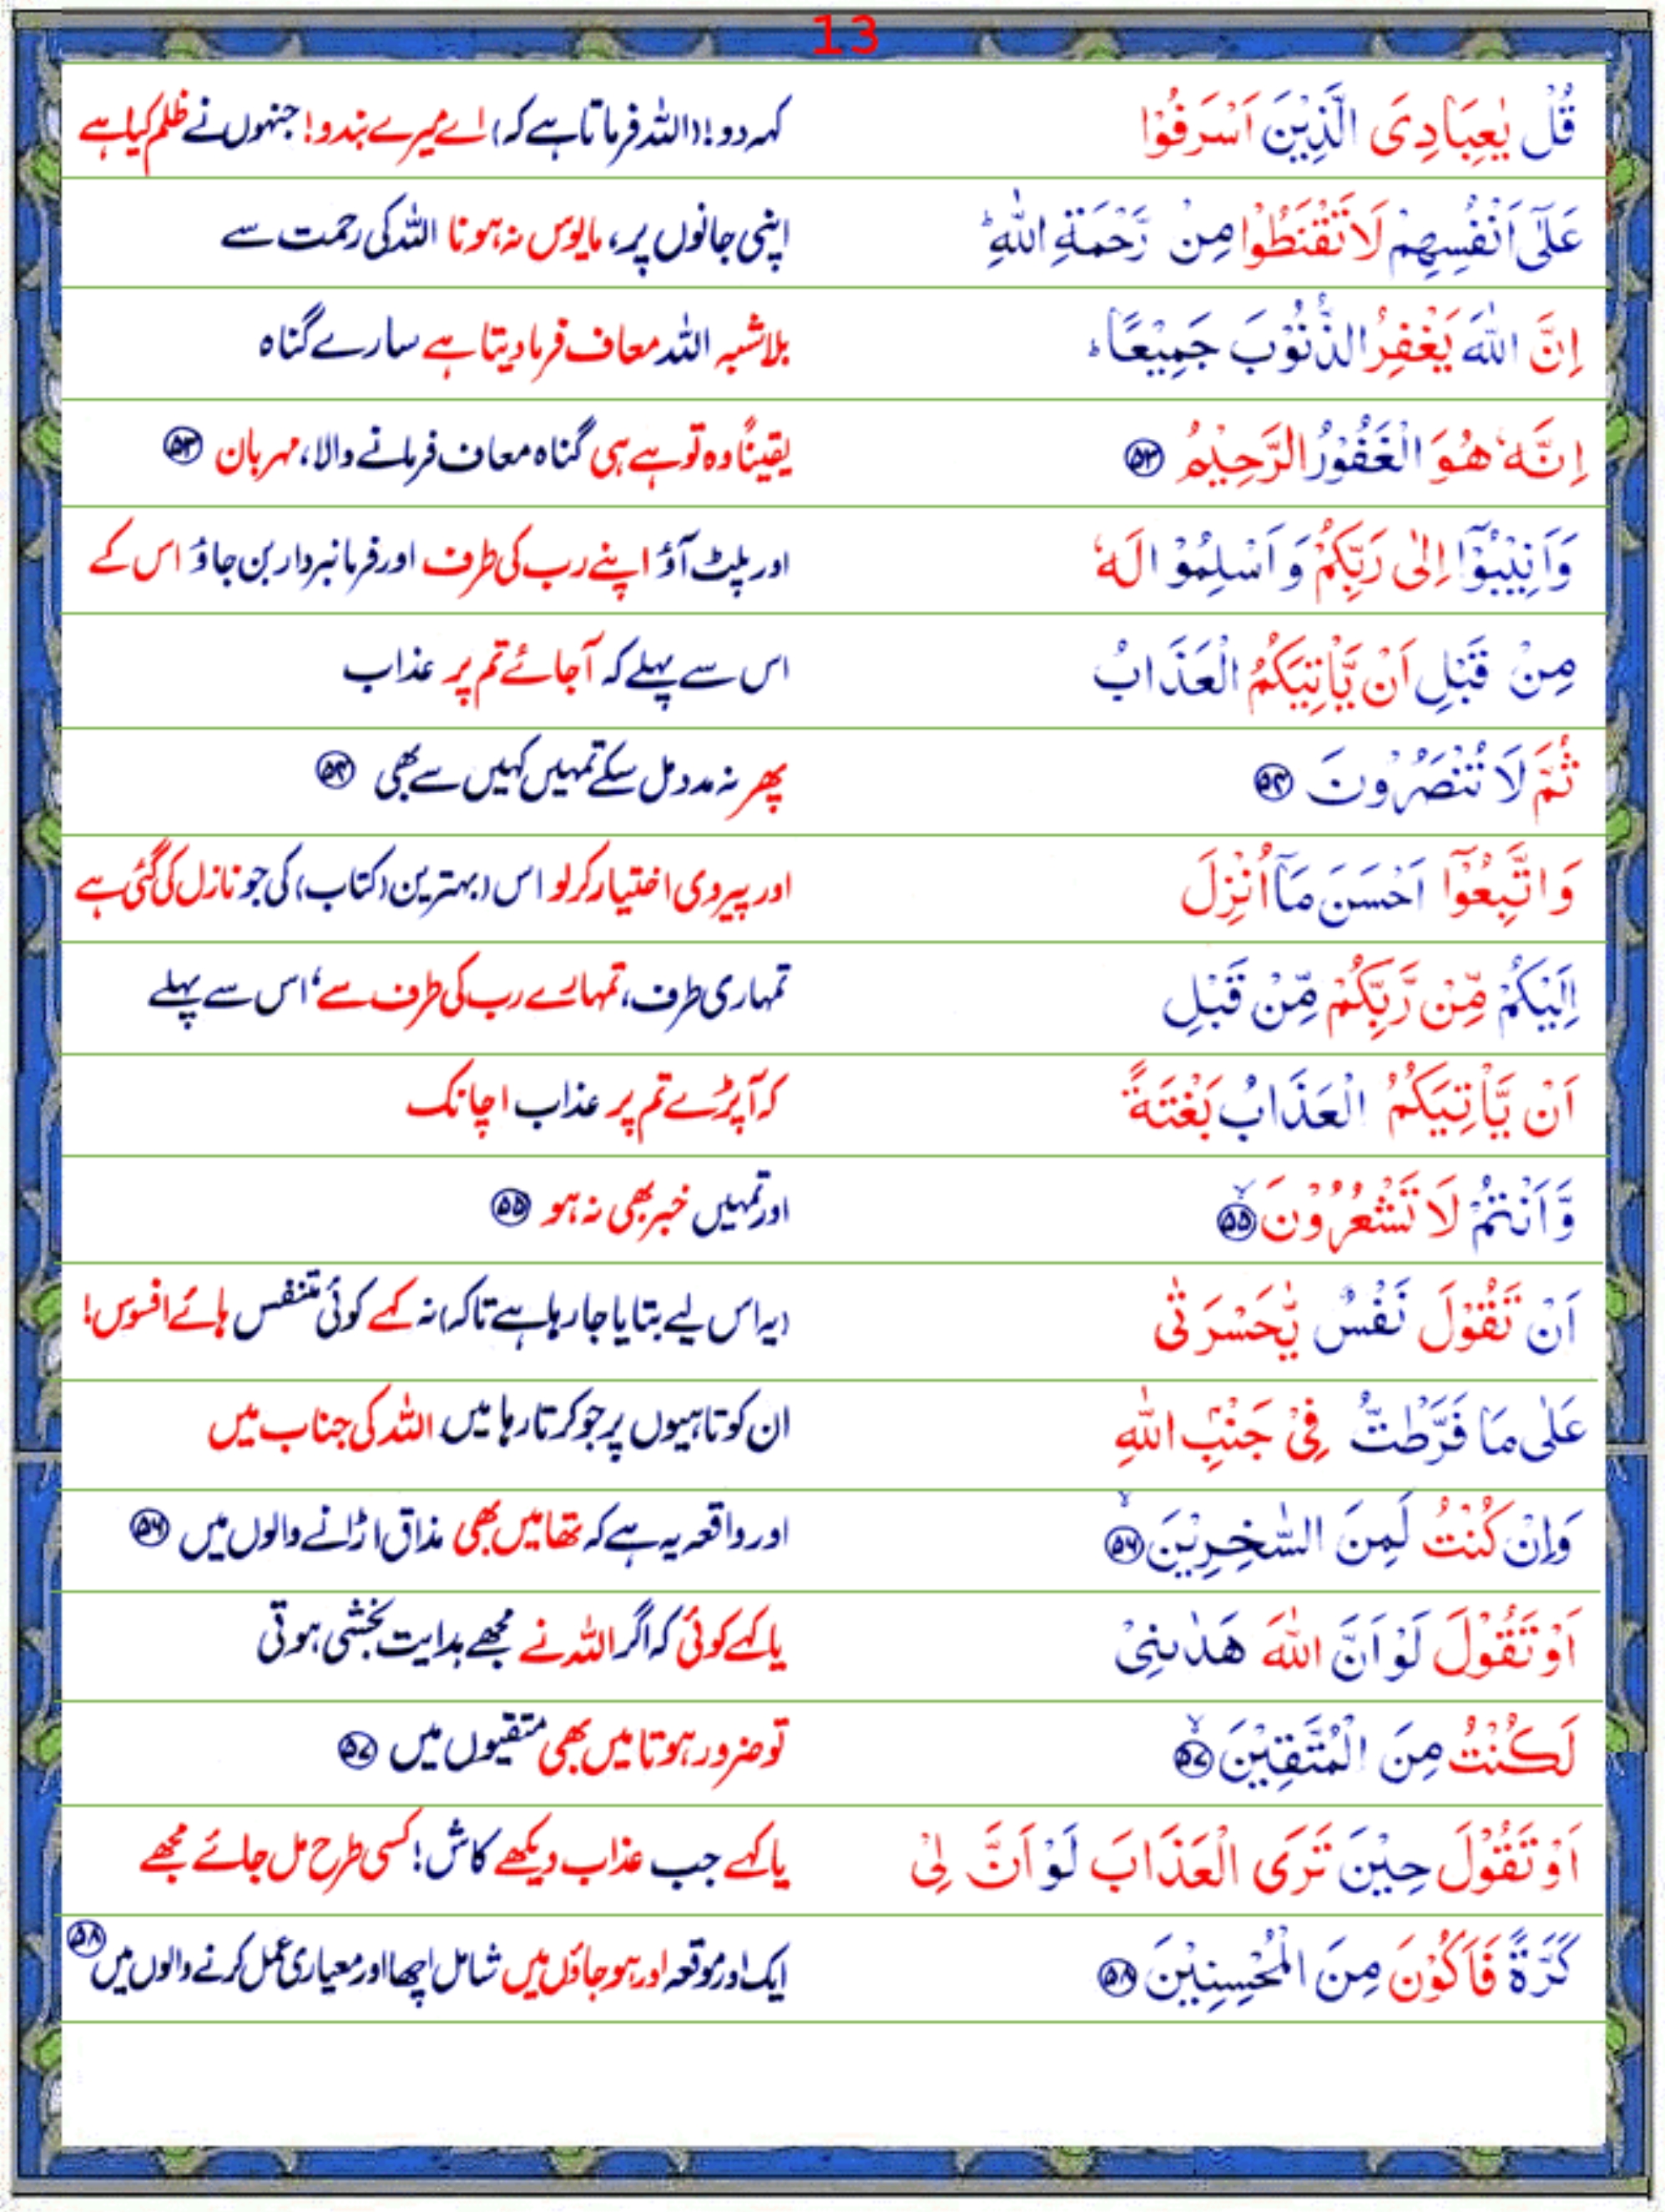 13
قُلْ يٰعِبَادِىَ الَّذِيْنَ اَسْرَفُوْا
کہہ دو! (اللہ فرماتا ہے کہ) اے میرے بندو! جنہوں نے ظلم کیا ہے
عَلٰٓى اَنْفُسِهِمْ لَا تَقْنَطُوْا مِنْ رَّحْمَةِ اللّٰهِ ؕ
اپنی جانوں پر، مایوس نہ ہونا اللہ کی رحمت سے
اِنَّ اللّٰهَ يَغْفِرُ الذُّنُوْبَ جَمِيْعًا ؕ
بلاشبہ اللہ معاف فرما دیتا ہے سارے گناہ
اِنَّهٗ هُوَ الْغَفُوْرُ الرَّحِيْمُ ﴿۵۳﴾
یقیناً وہ تو ہے ہی گناہ معاف فرمانے والا، مہربان ﴿۵۳﴾
وَاَنِيْبُوْٓا اِلٰى رَبِّكُمْ وَ اَسْلِمُوْا لَهٗ
اور پلٹ آؤ اپنے رب کی طرف اور فرمانبردار بن جاؤ اس کے
مِنْ قَبْلِ اَنْ يَّاْتِيَكُمُ الْعَذَابُ
اس سے پہلے کہ آجائے تم پر عذاب
ثُمَّ لَا تُنْصَرُوْنَ ﴿۵۴﴾
پھر نہ مدد مل سکے تمہیں کہیں سے بھی ﴿۵۴﴾
وَ اتَّبِعُوْٓا اَحْسَنَ مَآ اُنْزِلَ
اور پیروی اختیار کرلو اس (بہترین کتاب) کی جو نازل کی گئی ہے
اِلَيْكُمْ مِّنْ رَّبِّكُمْ مِّنْ قَبْلِ
تمہاری طرف، تمہارے رب کی طرف سے، اس سے پہلے
اَنْ يَّاْتِيَكُمُ الْعَذَابُ بَغْتَةً
کہ آپڑے تم پر عذاب اچانک
وَّ اَنْتُمْ لَا تَشْعُرُوْنَ ۙ﴿۵۵﴾
اور تمہیں خبر بھی نہ ہو ﴿۵۵﴾
اَنْ تَقُوْلَ نَفْسٌ يّٰحَسْرَتٰى
(یہ اس لیے بتایا جا رہا ہے تاکہ) نہ کہے کوئی متنفس ہائے افسوس!
عَلٰى مَا فَرَّطْتُّ فِىْ جَنْۢبِ اللّٰهِ
ان کوتاہیوں پر جو کرتا رہا میں اللہ کی جناب میں
وَاِنْ كُنْتُ لَمِنَ السّٰخِرِيْنَ ۙ﴿۵۶﴾
اور واقعہ یہ ہے کہ تھا میں بھی مذاق اڑانے والوں میں ﴿۵۶﴾
اَوْ تَقُوْلَ لَوْ اَنَّ اللّٰهَ هَدٰىنِىْ
یا کہے کوئی کہ اگر اللہ نے مجھے ہدایت بخشی ہوتی
لَكُنْتُ مِنَ الْمُتَّقِيْنَ ۙ﴿۵۷﴾
تو ضرور ہوتا میں بھی متقیوں میں ﴿۵۷﴾
اَوْ تَقُوْلَ حِيْنَ تَرَى الْعَذَابَ لَوْ اَنَّ لِىْ
یا کہے جب عذاب دیکھے کاش! کسی طرح مل جائے مجھے
كَرَّةً فَاَكُوْنَ مِنَ الْمُحْسِنِيْنَ ﴿۵۸﴾
ایک اور موقعہ اور ہو جاؤں میں شامل اچھا اور معیاری عمل کرنے والوں میں ﴿۵۸﴾